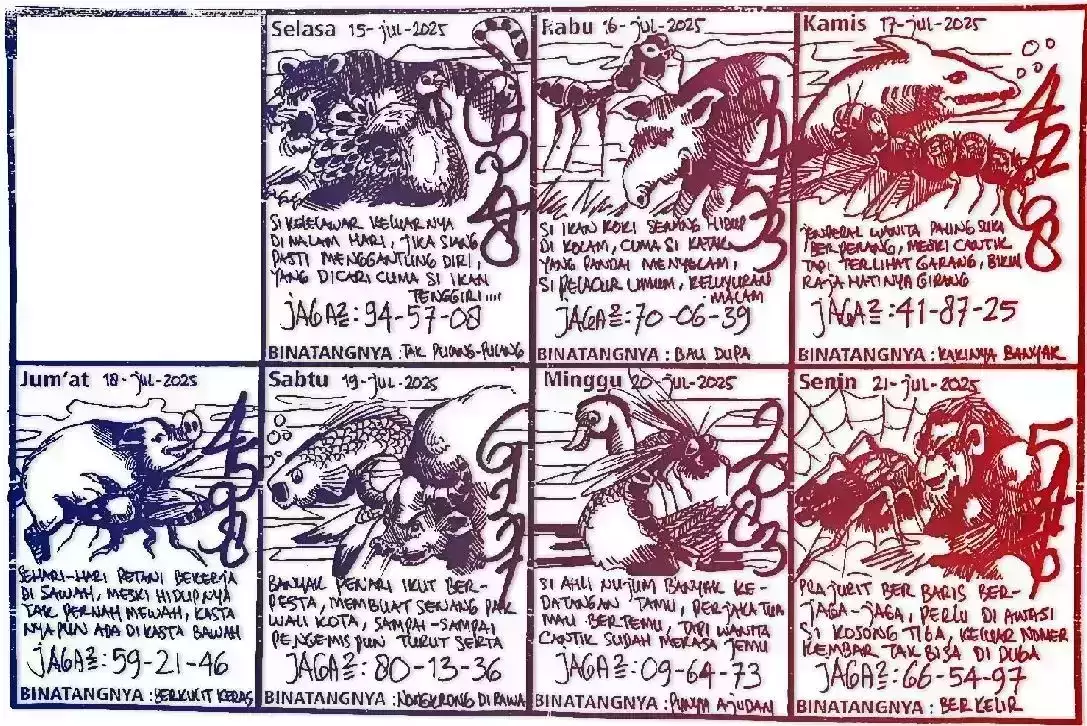 Selasa 15-jul-2025
SI KELELAWAR KELUARNYA
DI MALAM HARI, JIKA SIANG
PASTI MENGGANTUNG DIRI,
YANG DICARI CUMA SI IKAN
TENGGIRI....
JAGA²: 94-57-08
BINATANGNYA : TAK PULANG-PULANG
Rabu 16-jul-2025
SI IKAN KOKI SENANG HIDUP
DI KOLAM, CUMA SI KATAK
YANG PANDAI MENYELAM,
SI PELACUR UMUM, KELUYURAN
MALAM
JAGA²: 70-06-39
BINATANGNYA : BAU DUPA
Kamis 17-jul-2025
JENDERAL WANITA PALING SUKA
BERPERANG, MESKI CANTIK
TAPI TERLIHAT GARANG, BIKIN
RAJA HATINYA GIRANG
JAGA²: 41-87-25
BINATANGNYA : KAKINYA BANYAK
Jum'at 18-jul-2025
SEHARI-HARI PETANI BEKERJA
DI SAWAH, MESKI HIDUPNYA
TAK PERNAH MEWAH, KASTA
NYA PUN ADA DI KASTA BAWAH
JAGA²: 59-21-46
BINATANGNYA : BERKULIT KERAS
Sabtu 19-jul-2025
BANYAK PENARI IKUT BER-
PESTA, MEMBUAT SENANG PAK
WALI KOTA, SAMPAI-SAMPAI
PENGEMIS PUN TURUT SERTA
JAGA²: 80-13-36
BINATANGNYA : NONGKRONG DI RAWA
Minggu 20-jul-2025
SI AHLI NUJUM BANYAK KE-
DATANGAN TAMU, PERJAKA TUA
MAU BERTEMU, TAPI WANITA
CANTIK SUDAH MERASA JEMU
JAGA²: 09-64-73
BINATANGNYA : PUNYA AJUDAN
Senin 21-jul-2025
PRAJURIT BER BARIS BER-
JAGA-JAGA, PERLU DI AWASI
SI KOSONG TIGA, KELUAR NOMER
KEMBAR TAK BISA DI DUGA
JAGA²: 66-54-97
BINATANGNYA : BERKELIR